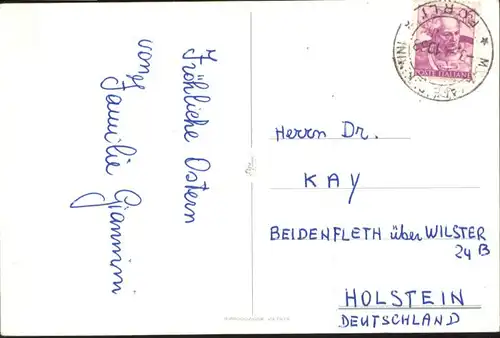 Fröhliche Ostern
von
Familie Giannini
POSTE ITALIANE
Herrn Dr.
KAY
BEIDENFLETH über WILSTER
24 B
HOLSTEIN
DEUTSCHLAND